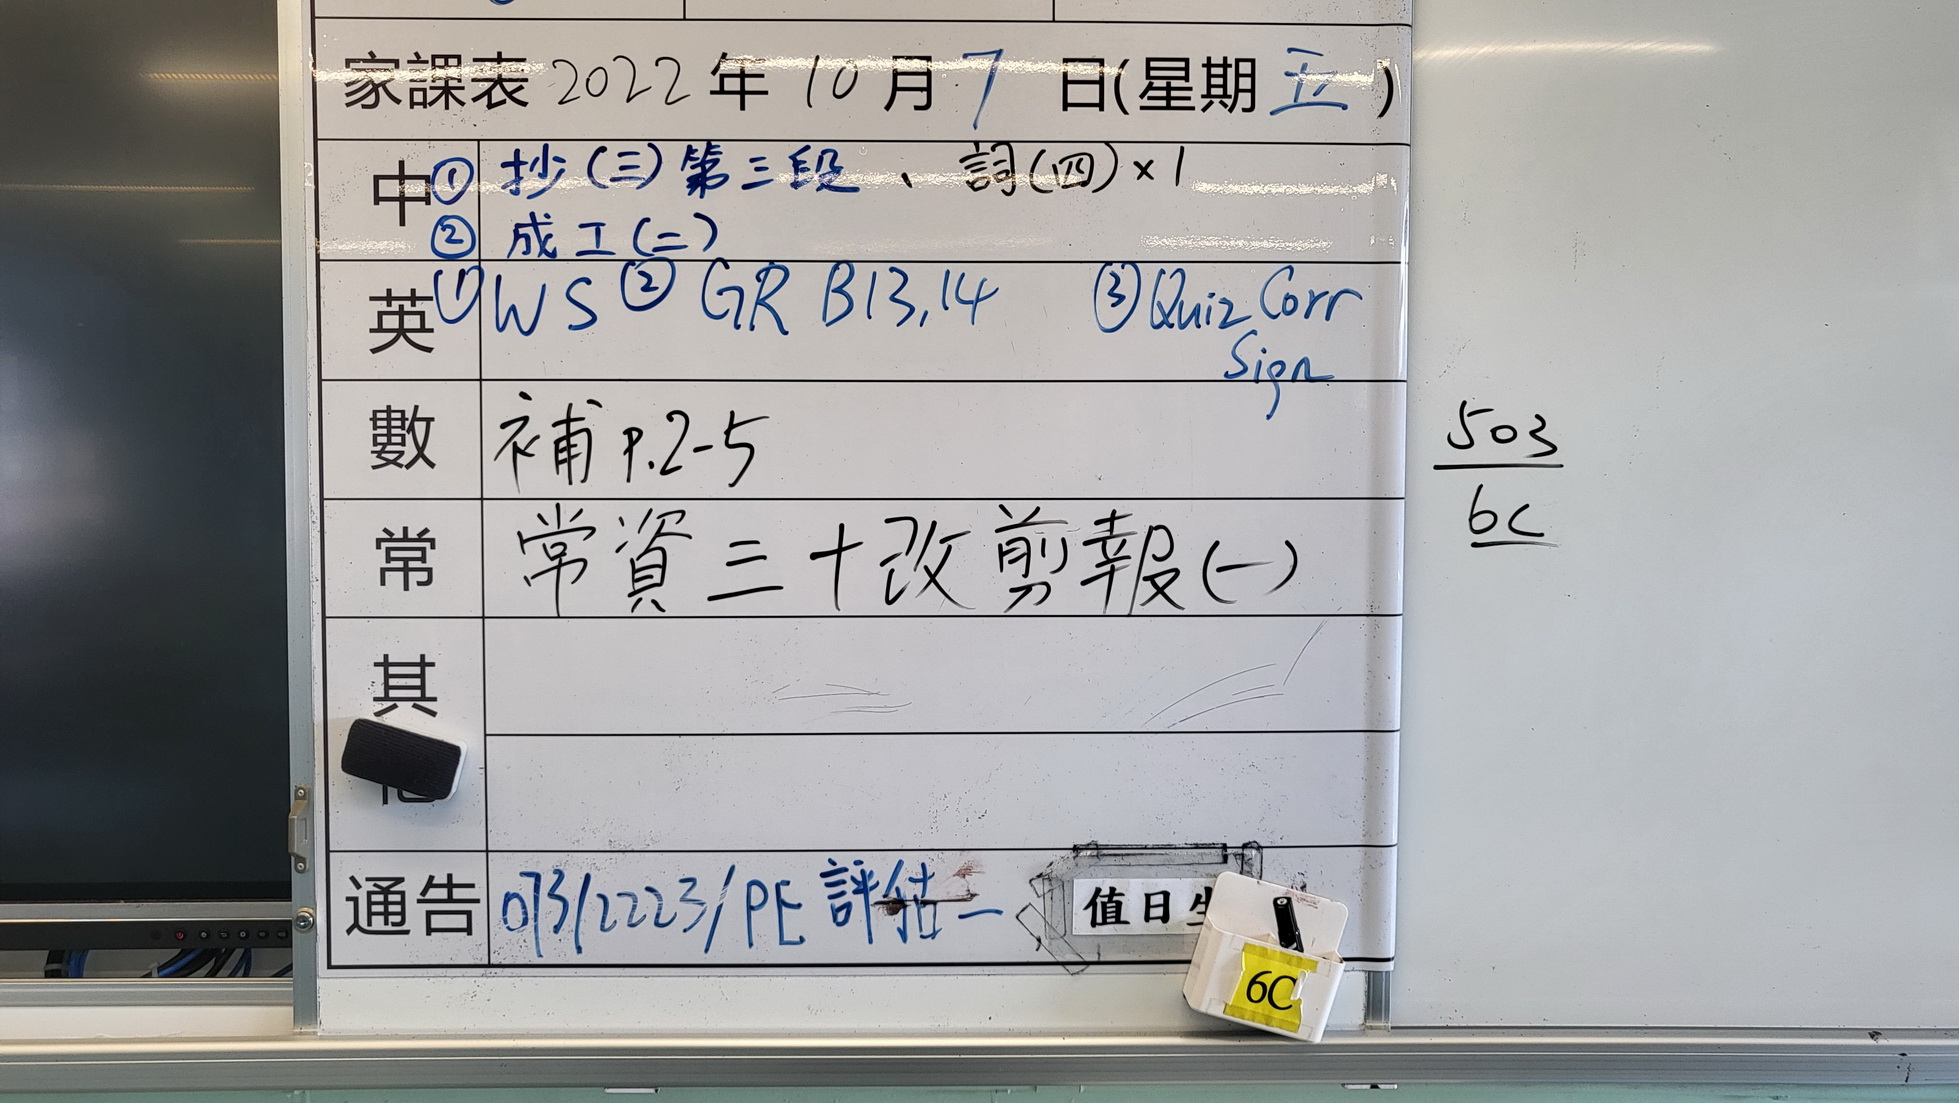 家課表 2022 年 10 月 7 日(星期 五)
中 ① 抄(三)第三段、詞(四)×1
② 成工(二)
英 ① WS ② GR B13,14 ③ Quiz Corr
Sign
數 補 P.2-5
常 常資三十改剪報(一)
其
他
通告 073/2223/PE 評估一
值日生
6C
503
6C